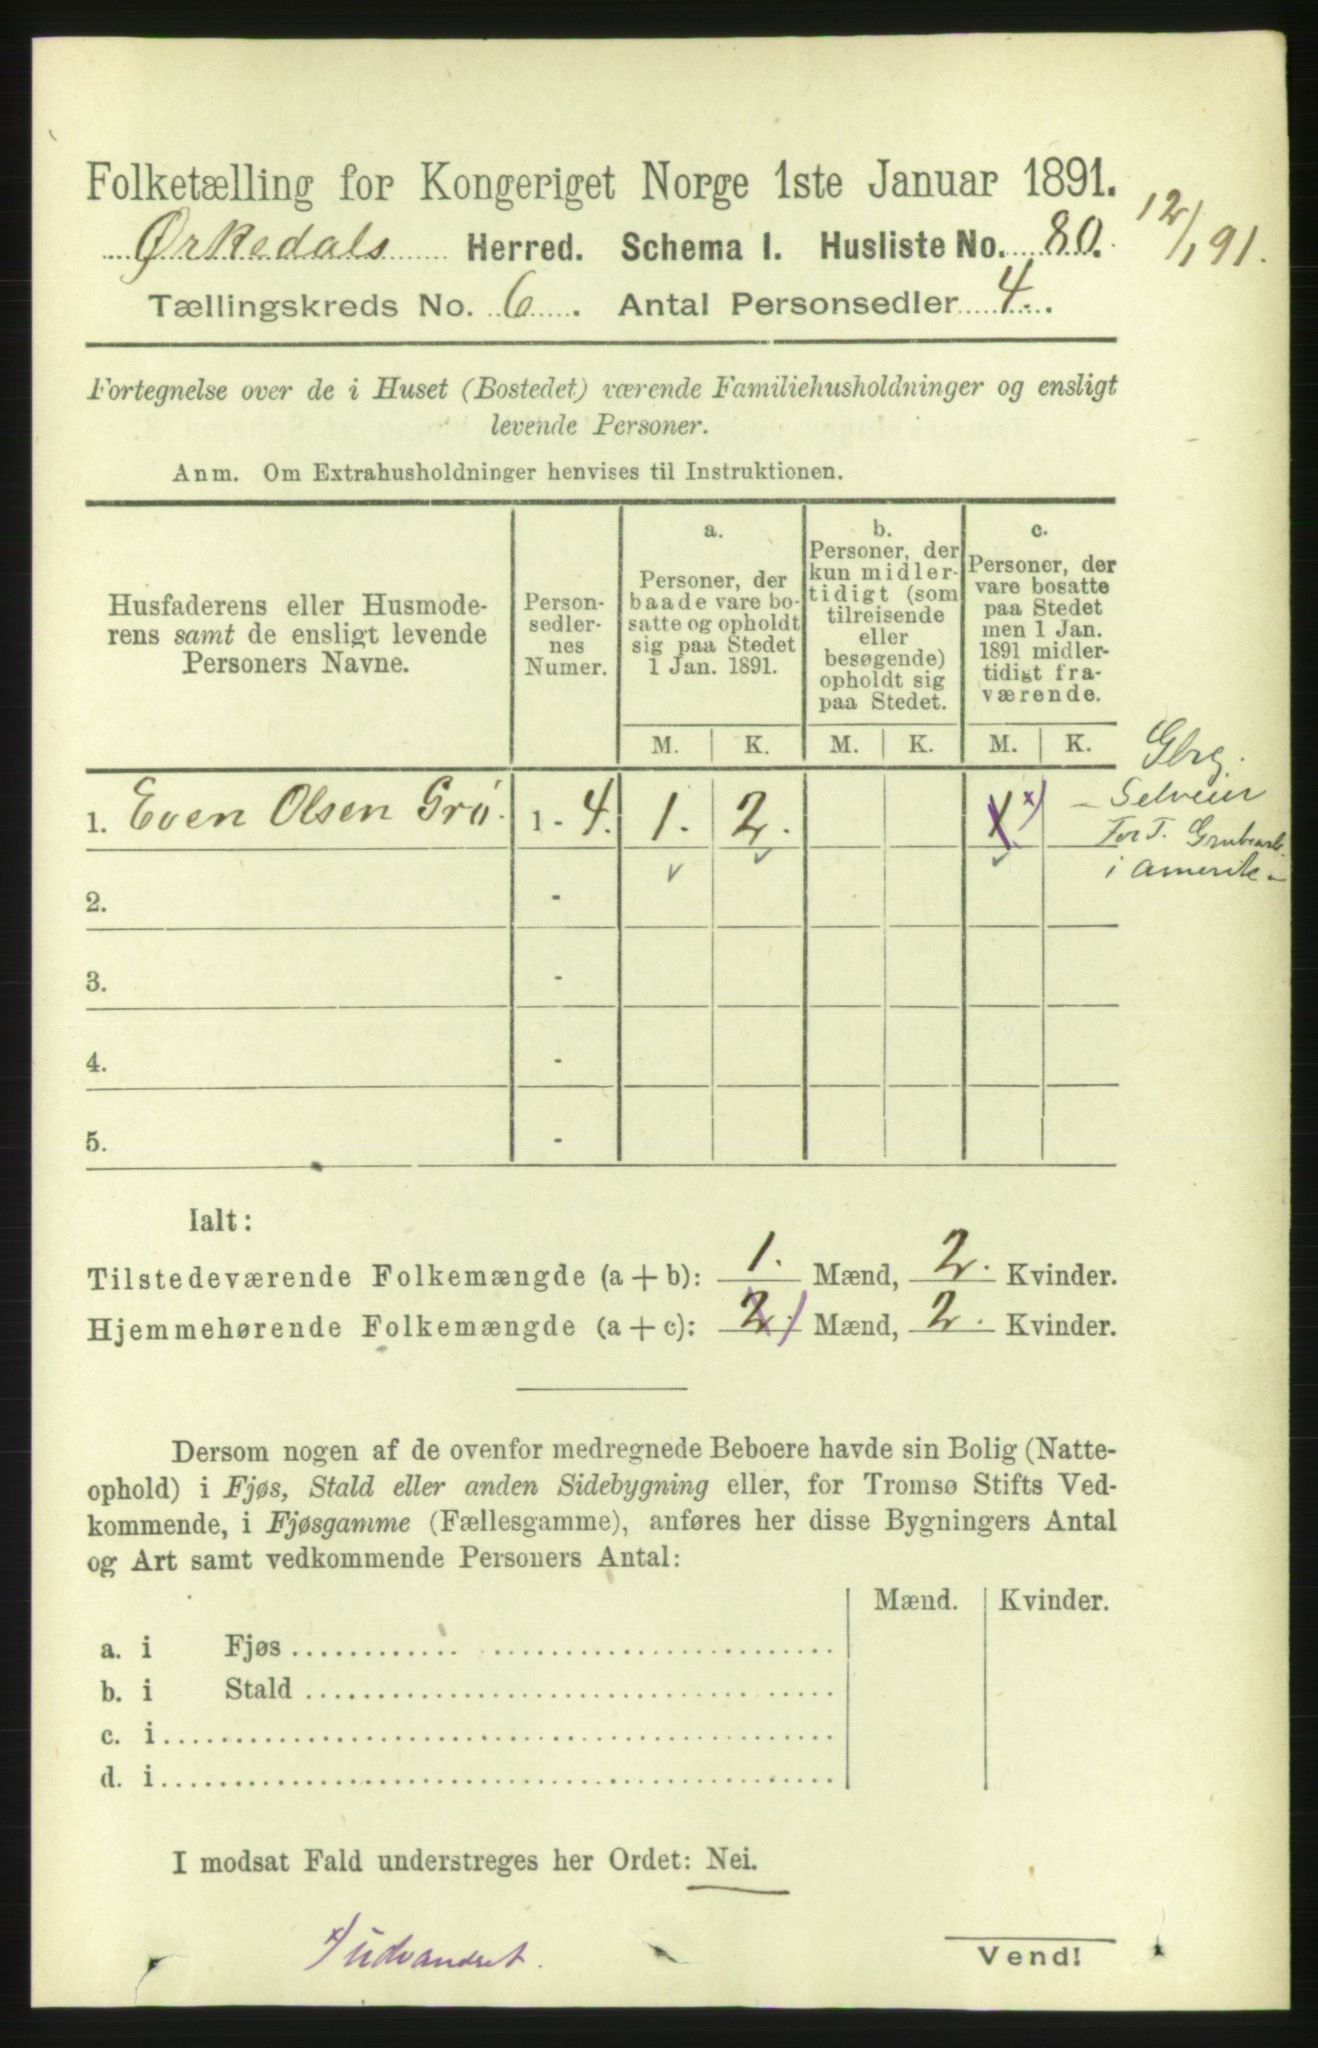 Folketælling for Kongeriget Norge 1ste Januar 1891.
Ørkedals Herred. Schema I. Husliste No. 80.
12/1 91.
Tællingskreds No. 6. Antal Personsedler 4.
Fortegnelse over de i Huset (Bostedet) værende Familiehusholdninger og ensligt
levende Personer.
Anm. Om Extrahusholdninger henvises til Instruktionen.
Husfaderens eller Husmode-
rens samt de ensligt levende
Personers Navne.
Person-
sedler-
nes
Numer.
a.
Personer, der
baade vare bo-
satte og opholdt
sig paa Stedet
1 Jan. 1891.
b.
Personer, der
kun midler-
tidigt (som
tilreisende
eller
besøgende)
opholdt sig
paa Stedet.
c.
Personer, der
vare bosatte
paa Stedet
men 1 Jan.
1891 midler-
tidigt fra-
værende.
M. K. M. K. M. K.
Gbrg.
- Selveier
For T. Grubearb.
i Amerik -
1. Even Olsen Grø. 1 - 4. 1. 2. 1 x)
2. -
3. -
4. -
5. -
Ialt:
Tilstedeværende Folkemængde (a + b): 1. Mænd, 2. Kvinder.
Hjemmehørende Folkemængde (a + c): 2. Mænd, 2. Kvinder.
Dersom nogen af de ovenfor medregnede Beboere havde sin Bolig (Natte-
ophold) i Fjøs, Stald eller anden Sidebygning eller, for Tromsø Stifts Ved-
kommende, i Fjøsgamme (Fællesgamme), anføres her disse Bygningers Antal
og Art samt vedkommende Personers Antal:
Mænd. Kvinder.
a. i Fjøs
b. i Stald
c. i
d. i
I modsat Fald understreges her Ordet: Nei.
x) udvandret.
Vend!